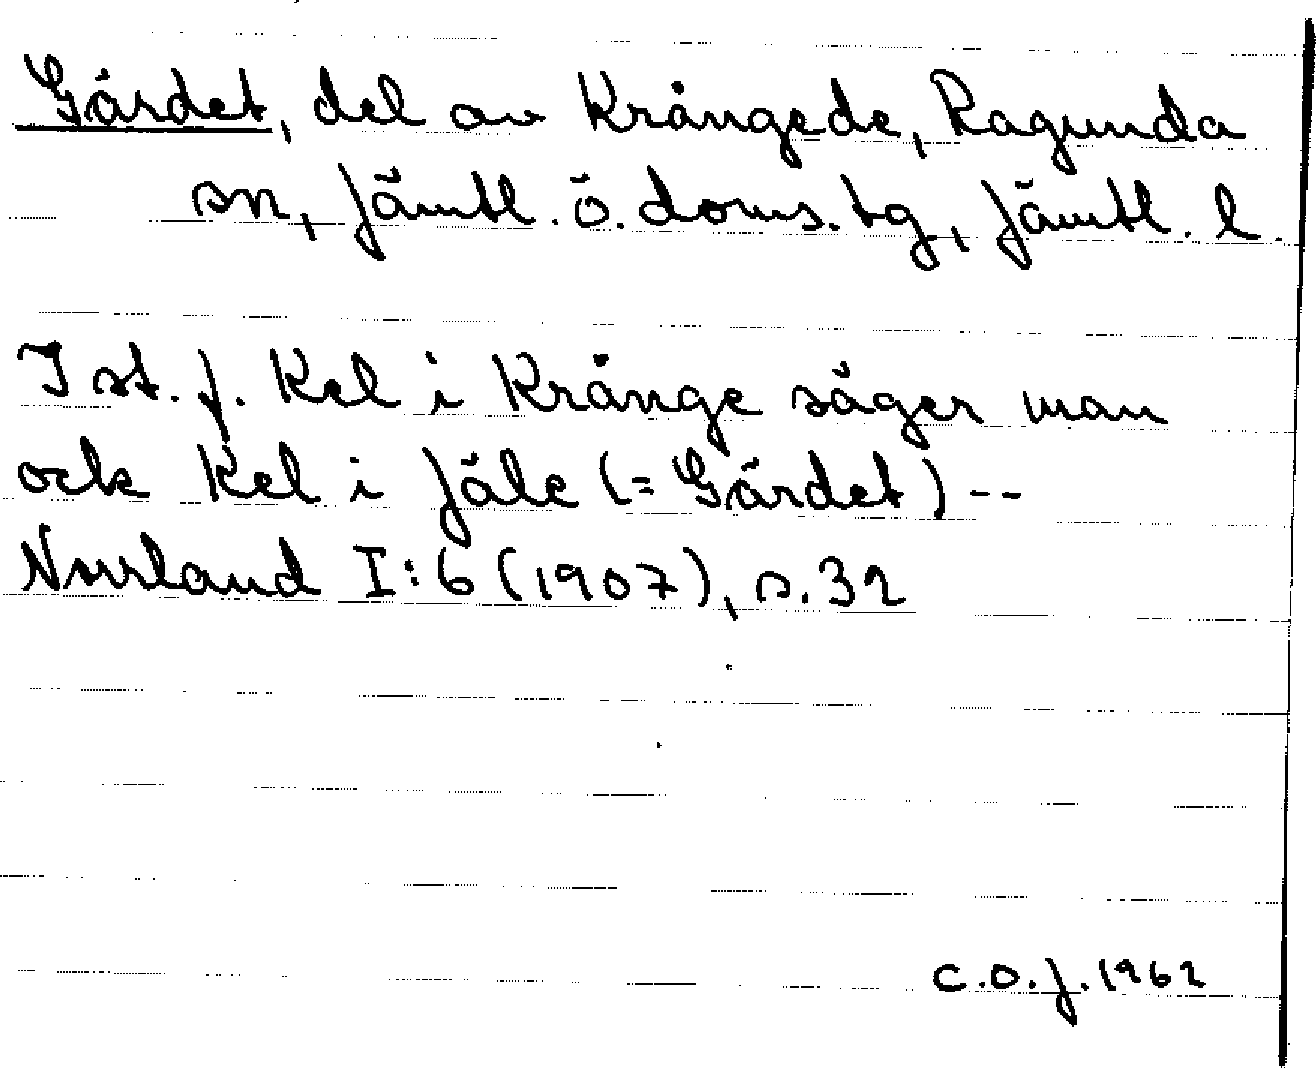 Gärdet, del av Krångede, Ragunda
sn, Jämtl. ö. doms. tg, Jämtl. l.
I st. f. Kel i Krånge säger man
ock Kel i Jäle (= Gärdet) --
Norrland I:6 (1907), s. 32
C.O.J. 1962